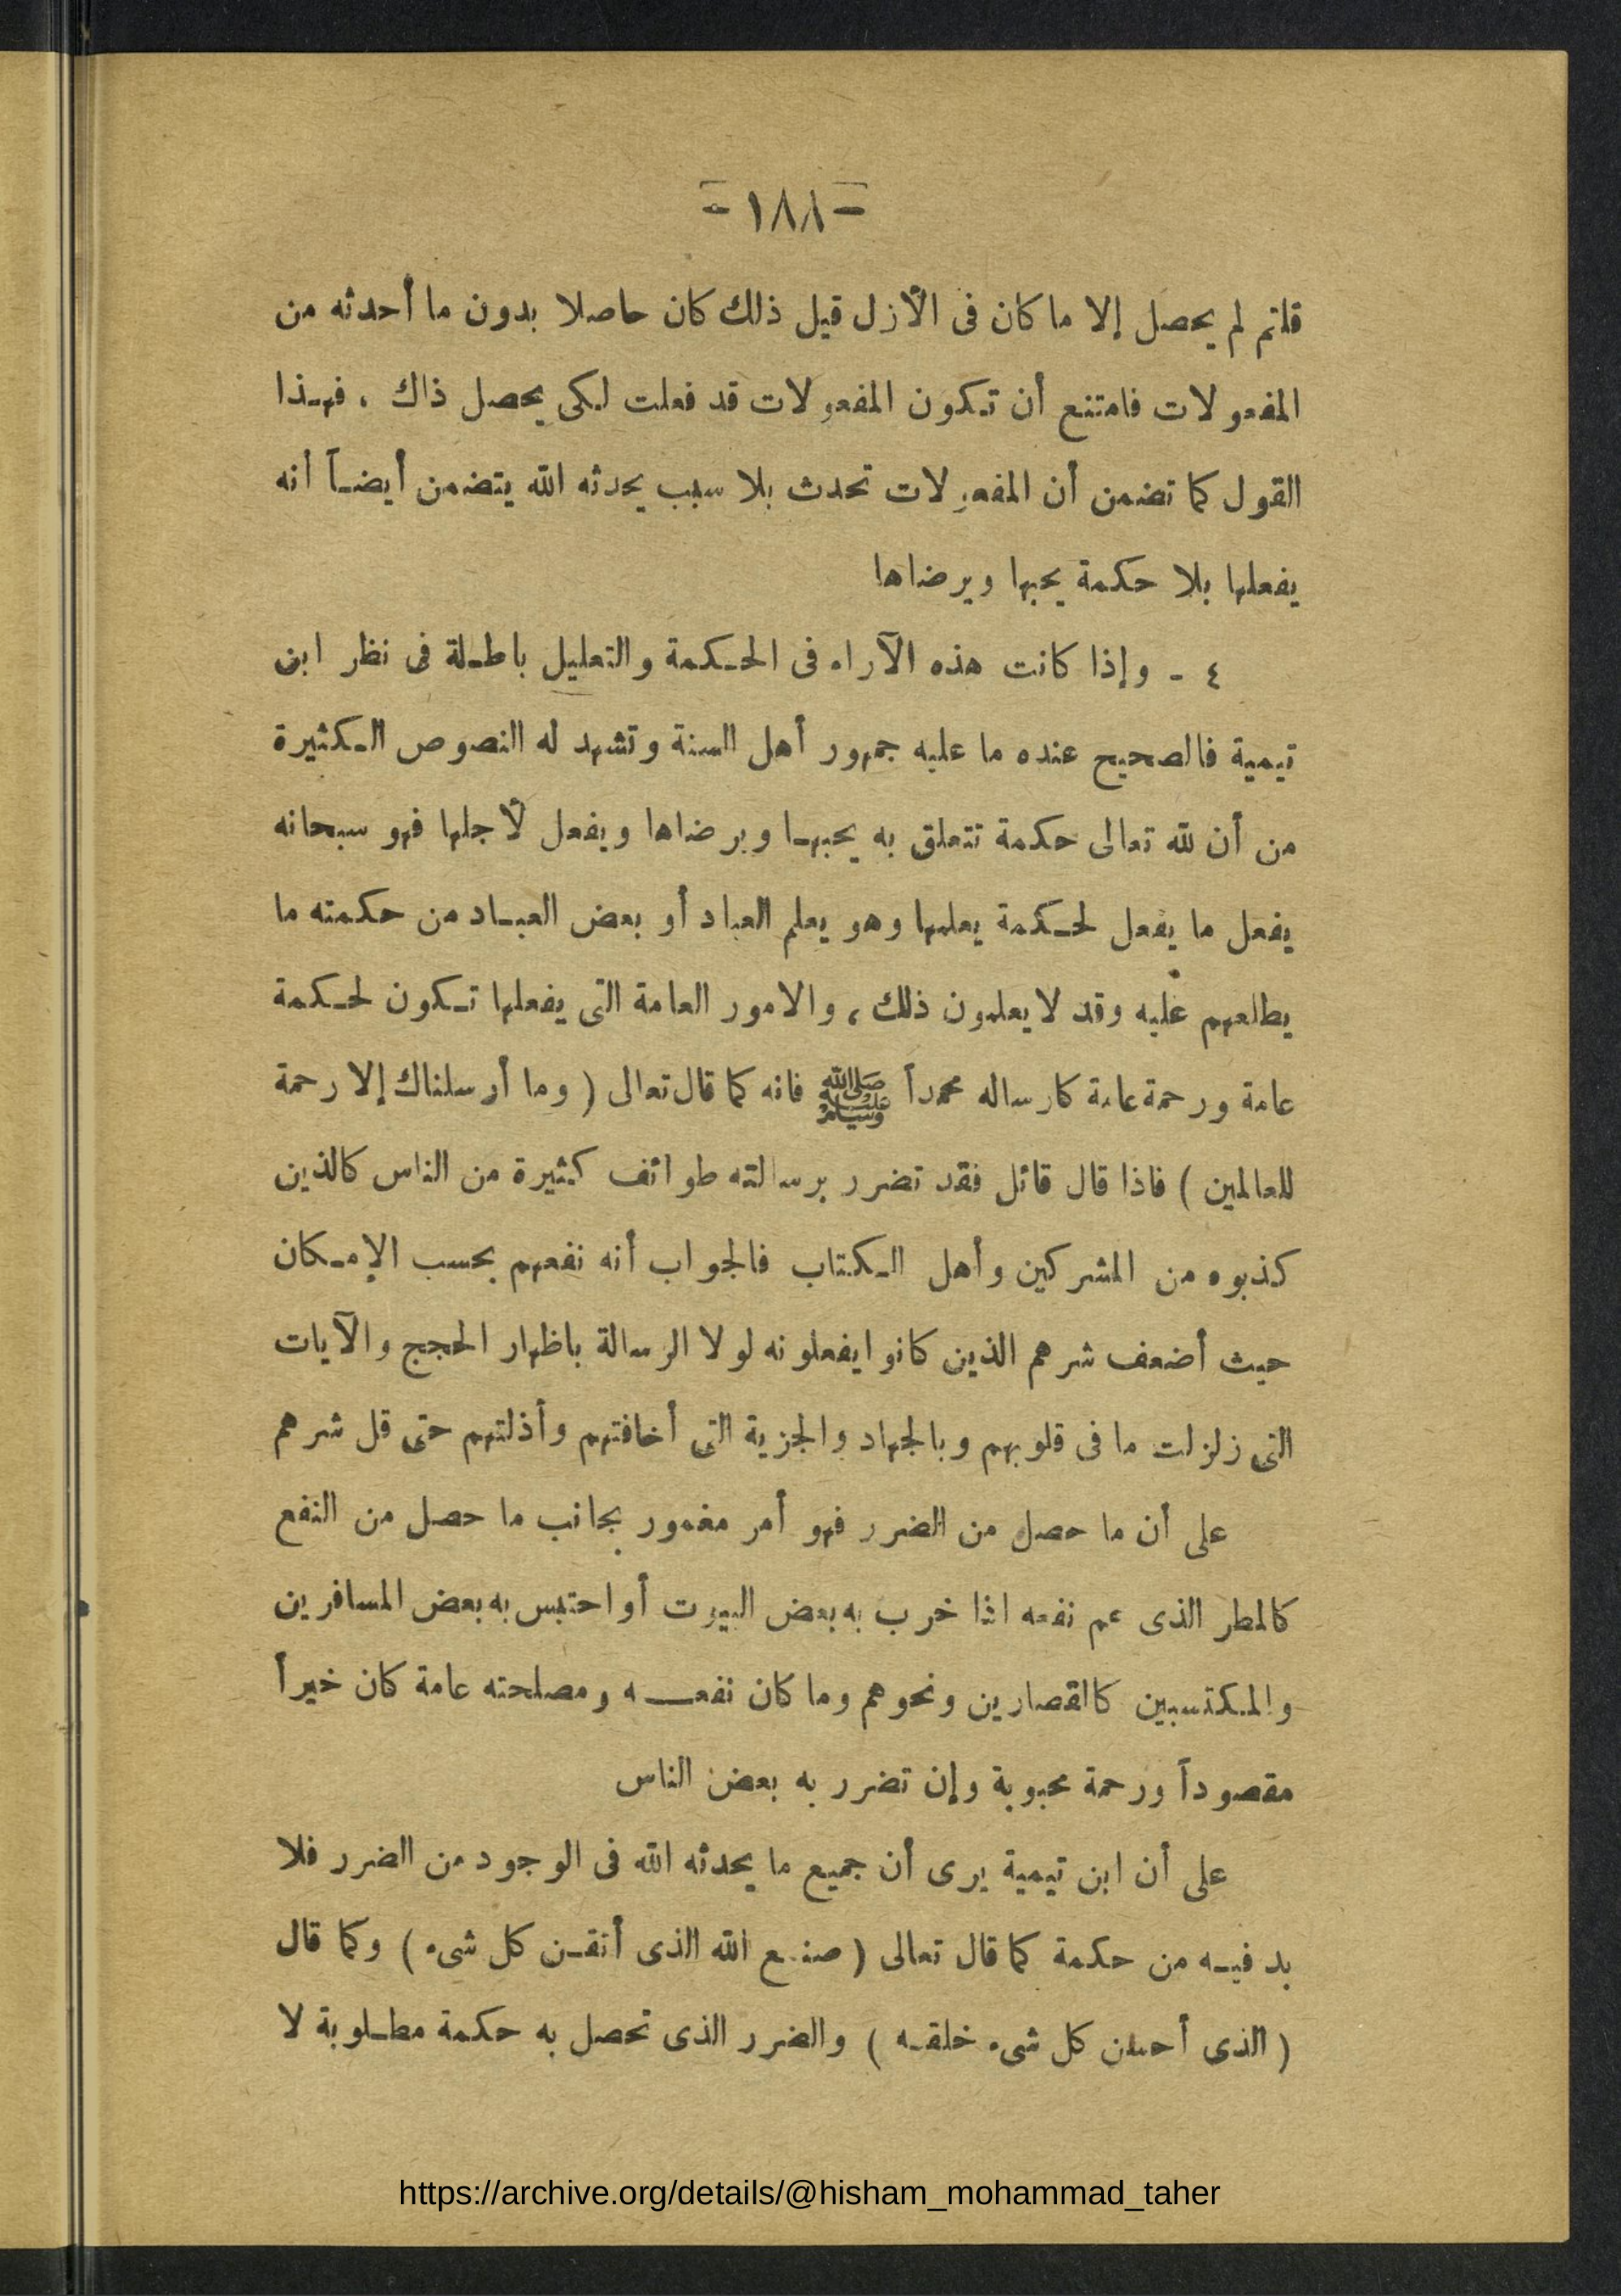 - ١٨٨ -
قلتم لم يحصل إلا ما كان فى الأزل قيل ذلك كان حاصلا بدون ما أحدثه من
المفعولات فامتنع أن تكون المفعولات قد فعلت لكى يحصل ذاك . فهذا
القول كما تضمن أن المفعولات تحدث بلا سبب يحدثه الله يتضمن أيضاً أنه
يفعلها بلا حكمة يحبها ويرضاها
٤ - وإذا كانت هذه الآراء فى الحكمة والتعليل باطلة فى نظر ابن
تيمية فالصحيح عنده ما عليه جمهور أهل السنة وتشهد له النصوص الكثيرة
من أن لله تعالى حكمة تتعلق به يحبها ويرضاها ويفعل لأجلها فهو سبحانه
يفعل ما يفعل لحكمة يعلمها وهو يعلم العباد أو بعض العباد من حكمته ما
يطلعهم عليه وقد لا يعلمون ذلك ، والامور العامة التى يفعلها تكون لحكمة
عامة ورحمة عامة كارساله محمداً ﷺ فانه كما قال تعالى ( وما أرسلناك إلا رحمة
للعالمين ) فاذا قال قائل فقد تضرر برسالته طوائف كثيرة من الناس كالذين
كذبوه من المشركين وأهل الكتاب فالجواب أنه نفعهم بحسب الإمكان
حيث أضعف شرهم الذين كانوا يفعلونه لولا الرسالة باظهار الحجج والآيات
التى زلزلت ما فى قلوبهم وبالجهاد والجزية التى أخافتهم وأذلتهم حتى قل شرهم
على أن ما حصل من الضرر فهو أمر مغمور بجانب ما حصل من النفع
كالمطر الذى عم نفعه اذا خرب به بعض البيوت أو احتبس به بعض المسافرين
والمكتسبين كالقصارين ونحوهم وما كان نفعه ومصلحته عامة كان خيراً
مقصوداً ورحمة محبوبة وإن تضرر به بعض الناس
على أن ابن تيمية يرى أن جميع ما يحدثه الله فى الوجود من الضرر فلا
بد فيه من حكمة كما قال تعالى ( صنع الله الذى أتقن كل شىء ) وكما قال
( الذى أحسن كل شىء خلقه ) والضرر الذى تحصل به حكمة مطلوبة لا
https://archive.org/details/@hisham_mohammad_taher